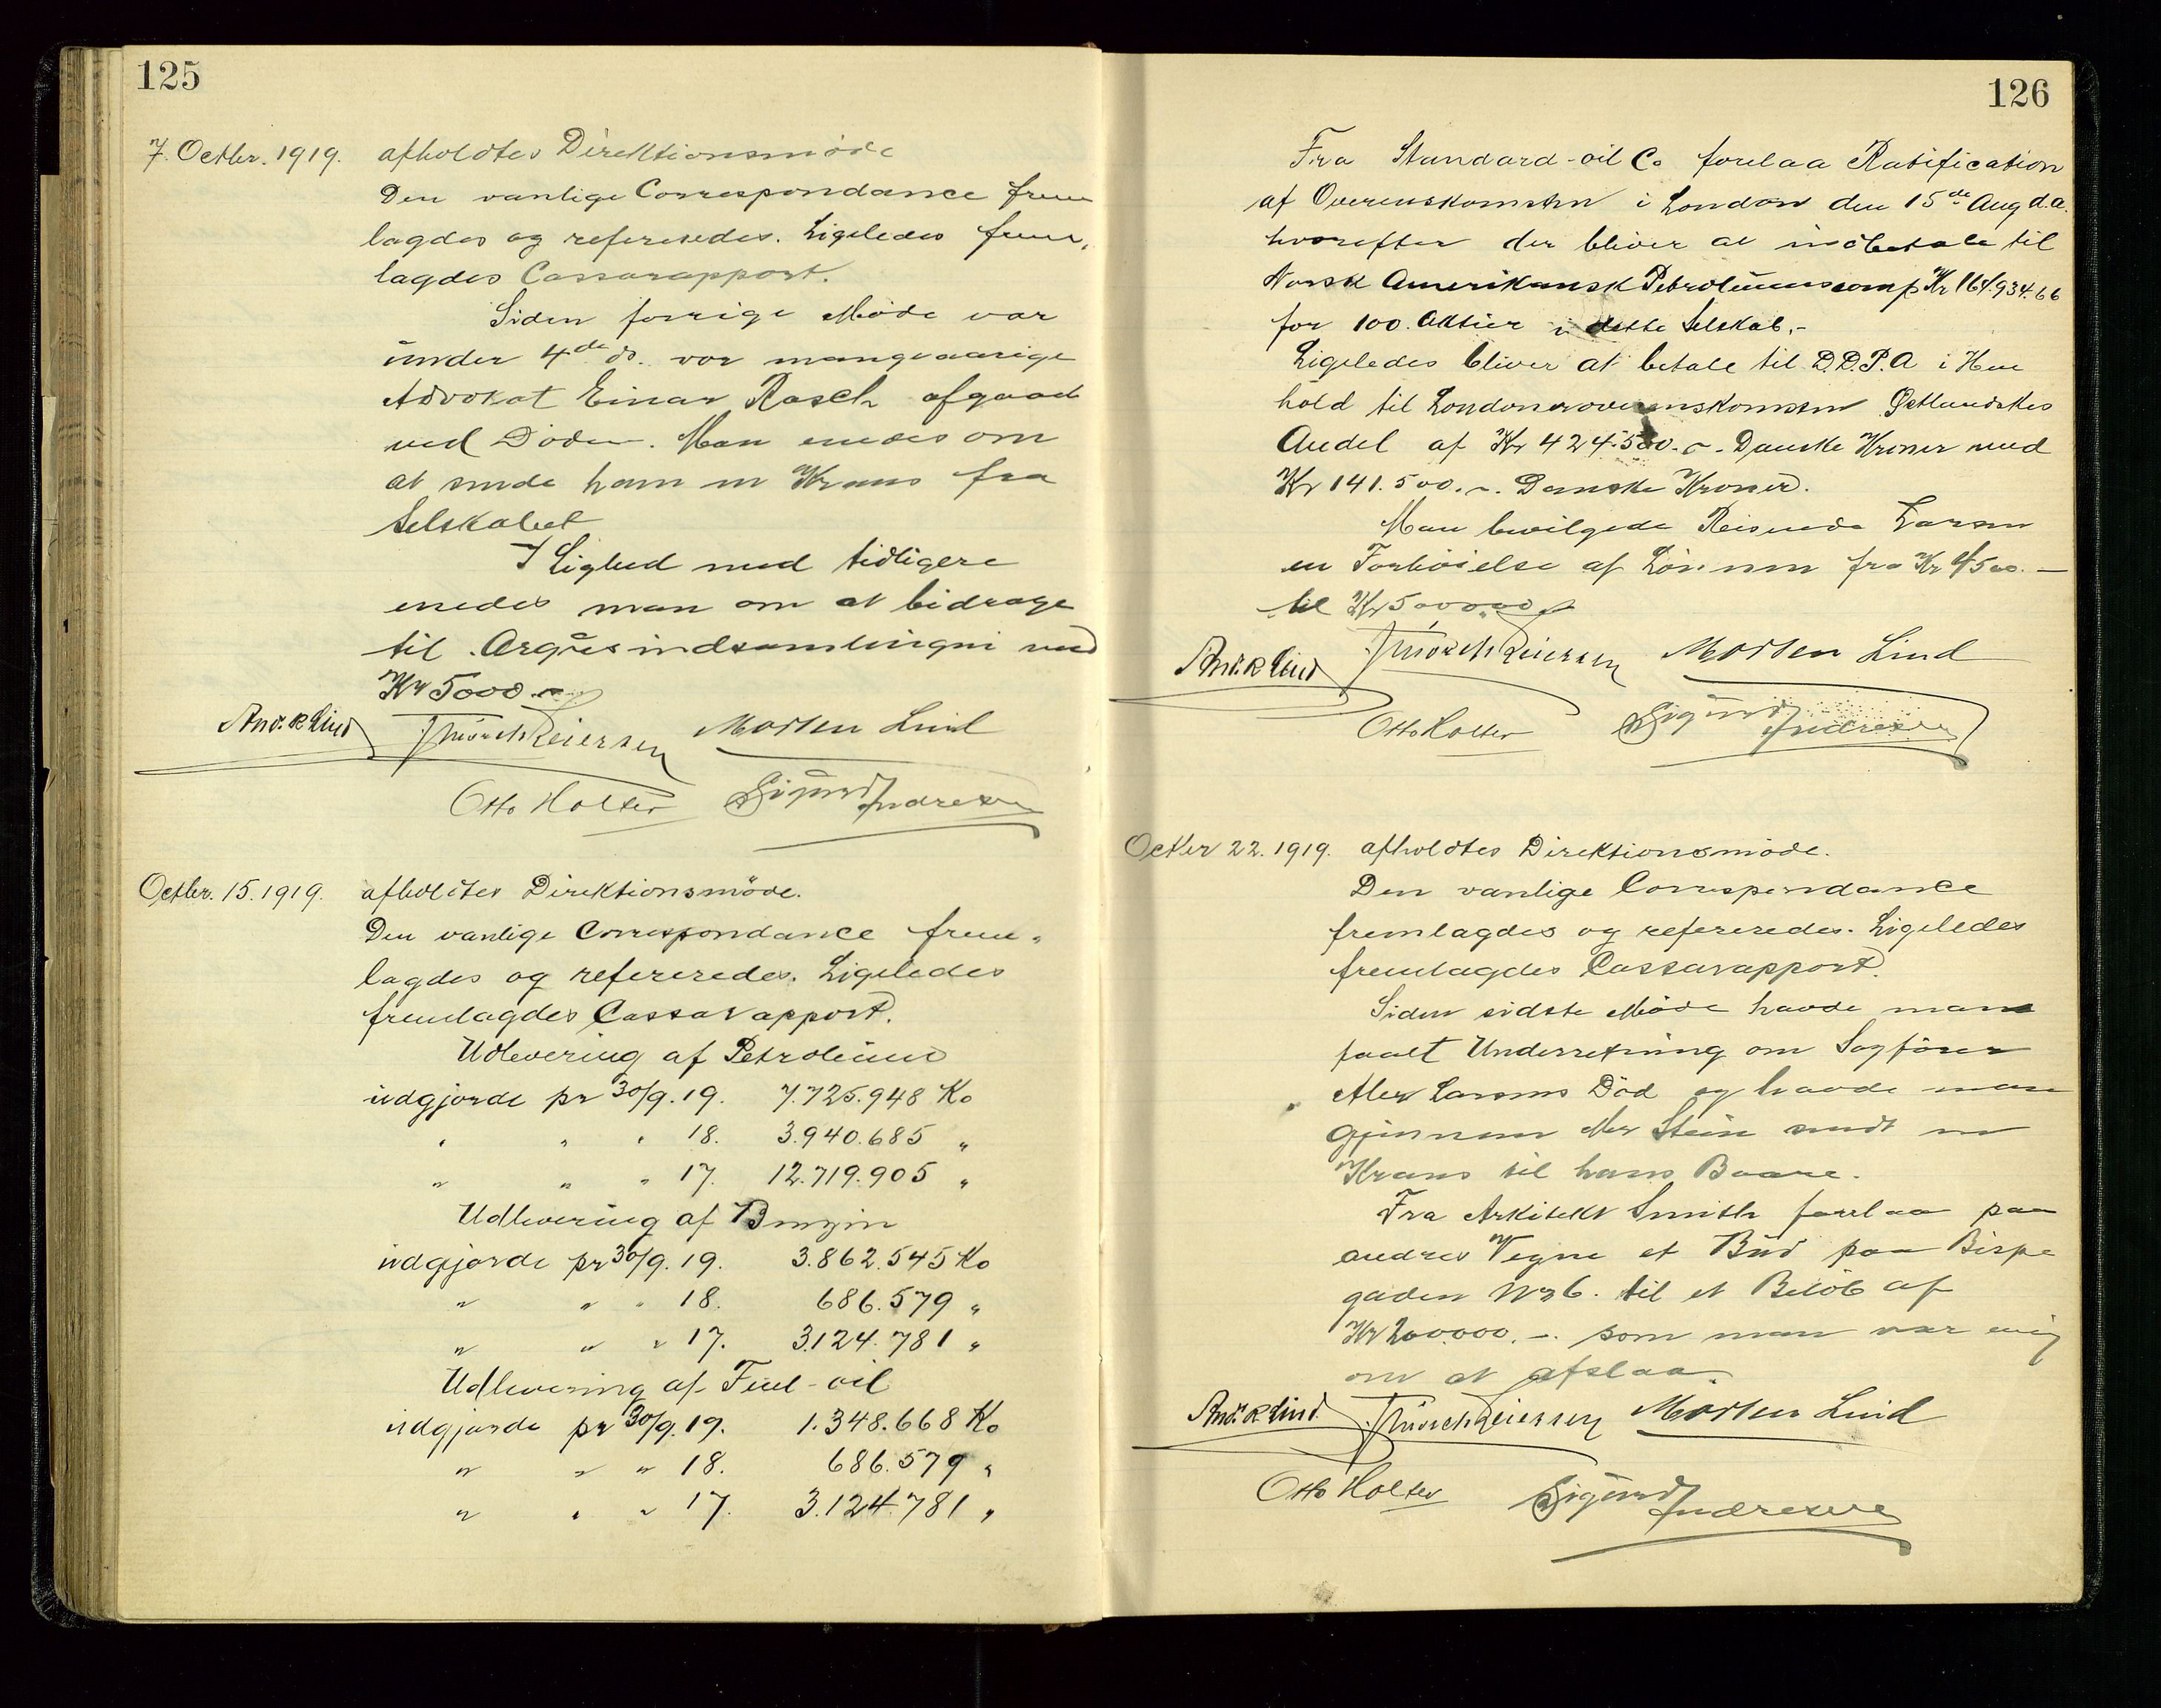 125
7. Octbr. 1919. afholdtes Direktionsmöde
Den vanlige Correspondance frem
lagdes og refereredes. Ligeledes frem,
lagdes Cassarapport.
Siden forrige Möde var
under 4de ds. vor mangeaarige
Advokat Einar Rasch afgaaet
ved Döden. Man enedes om
at sende ham en Krans fra
Selskabet
I Lighed med tidligere
enedes man om at bidrage
til Argusindsamlingen med
Kr 5000.-
And. R Lind Mörch Reiersen Morten Lind
Otto Holter Sigurd Andresen
Octbr. 15. 1919. afholdtes Direktionsmöde.
Den vanlige Correspondance frem-
lagdes og refereredes. Ligeledes
fremlagdes Cassarapport.
Udlevering af Petroleum
udgjorde pr 30/9. 19. 7.725.948 Ko
" " " 18. 3.940.685 "
" " " 17. 12.719.905 "
Udlevering af Benzin
udgjorde pr 30/9. 19. 3.862.545 Ko
" " " 18. 686.579 "
" " " 17. 3.124.781 "
Udlevering af Fuel-oil
udgjorde pr 30/9. 19. 1.348.668 Ko
" " " 18. 686.579 "
" " " 17. 3.124.781 "
126
Fra Standard-oil Co forelaa Ratification
af Overenskomsten i London den 15de Aug d.a.
hvorefter der bliver at indbetale til
Norsk Amerikansk Petroleumscomp Kr 164.934.66
for 100. Aktier i dette Selskab.-
Ligeledes bliver at betale til D.D.P.A i Hen
hold til Londoneroverenskomsten Östlandskes
Andel af Kr 424.500.- Danske Kroner med
Kr 141.500.-. Danske Kroner.
Man bevilgede Reisende Larsen
en Forhöielse af Lönnen fra Kr 4500.-
til Kr 5000.00
And. R Lind Mörch Reiersen Morten Lind
Otto Holter Sigurd Andresen
Octbr 22. 1919. afholdtes Direktionsmöde.
Den vanlige Correspondance
fremlagdes og refereredes. Ligeledes
fremlagdes Cassarapport.
Siden sidste Möde havde man
faaet Underretning om Sagförer
Alex Larsens Död og havde man
gjennem Stein sendt en
Krans til hans Baare.
Fra Arkitekt Smith forelaa paa
andres Vegne et Bud paa Bispe
gaden No 6. til et Belöb af
Kr 200.000.-. som man var enig
om at afslaa.
And. R Lind. Mörch Reiersen Morten Lind
Otto Holter Sigurd Andresen